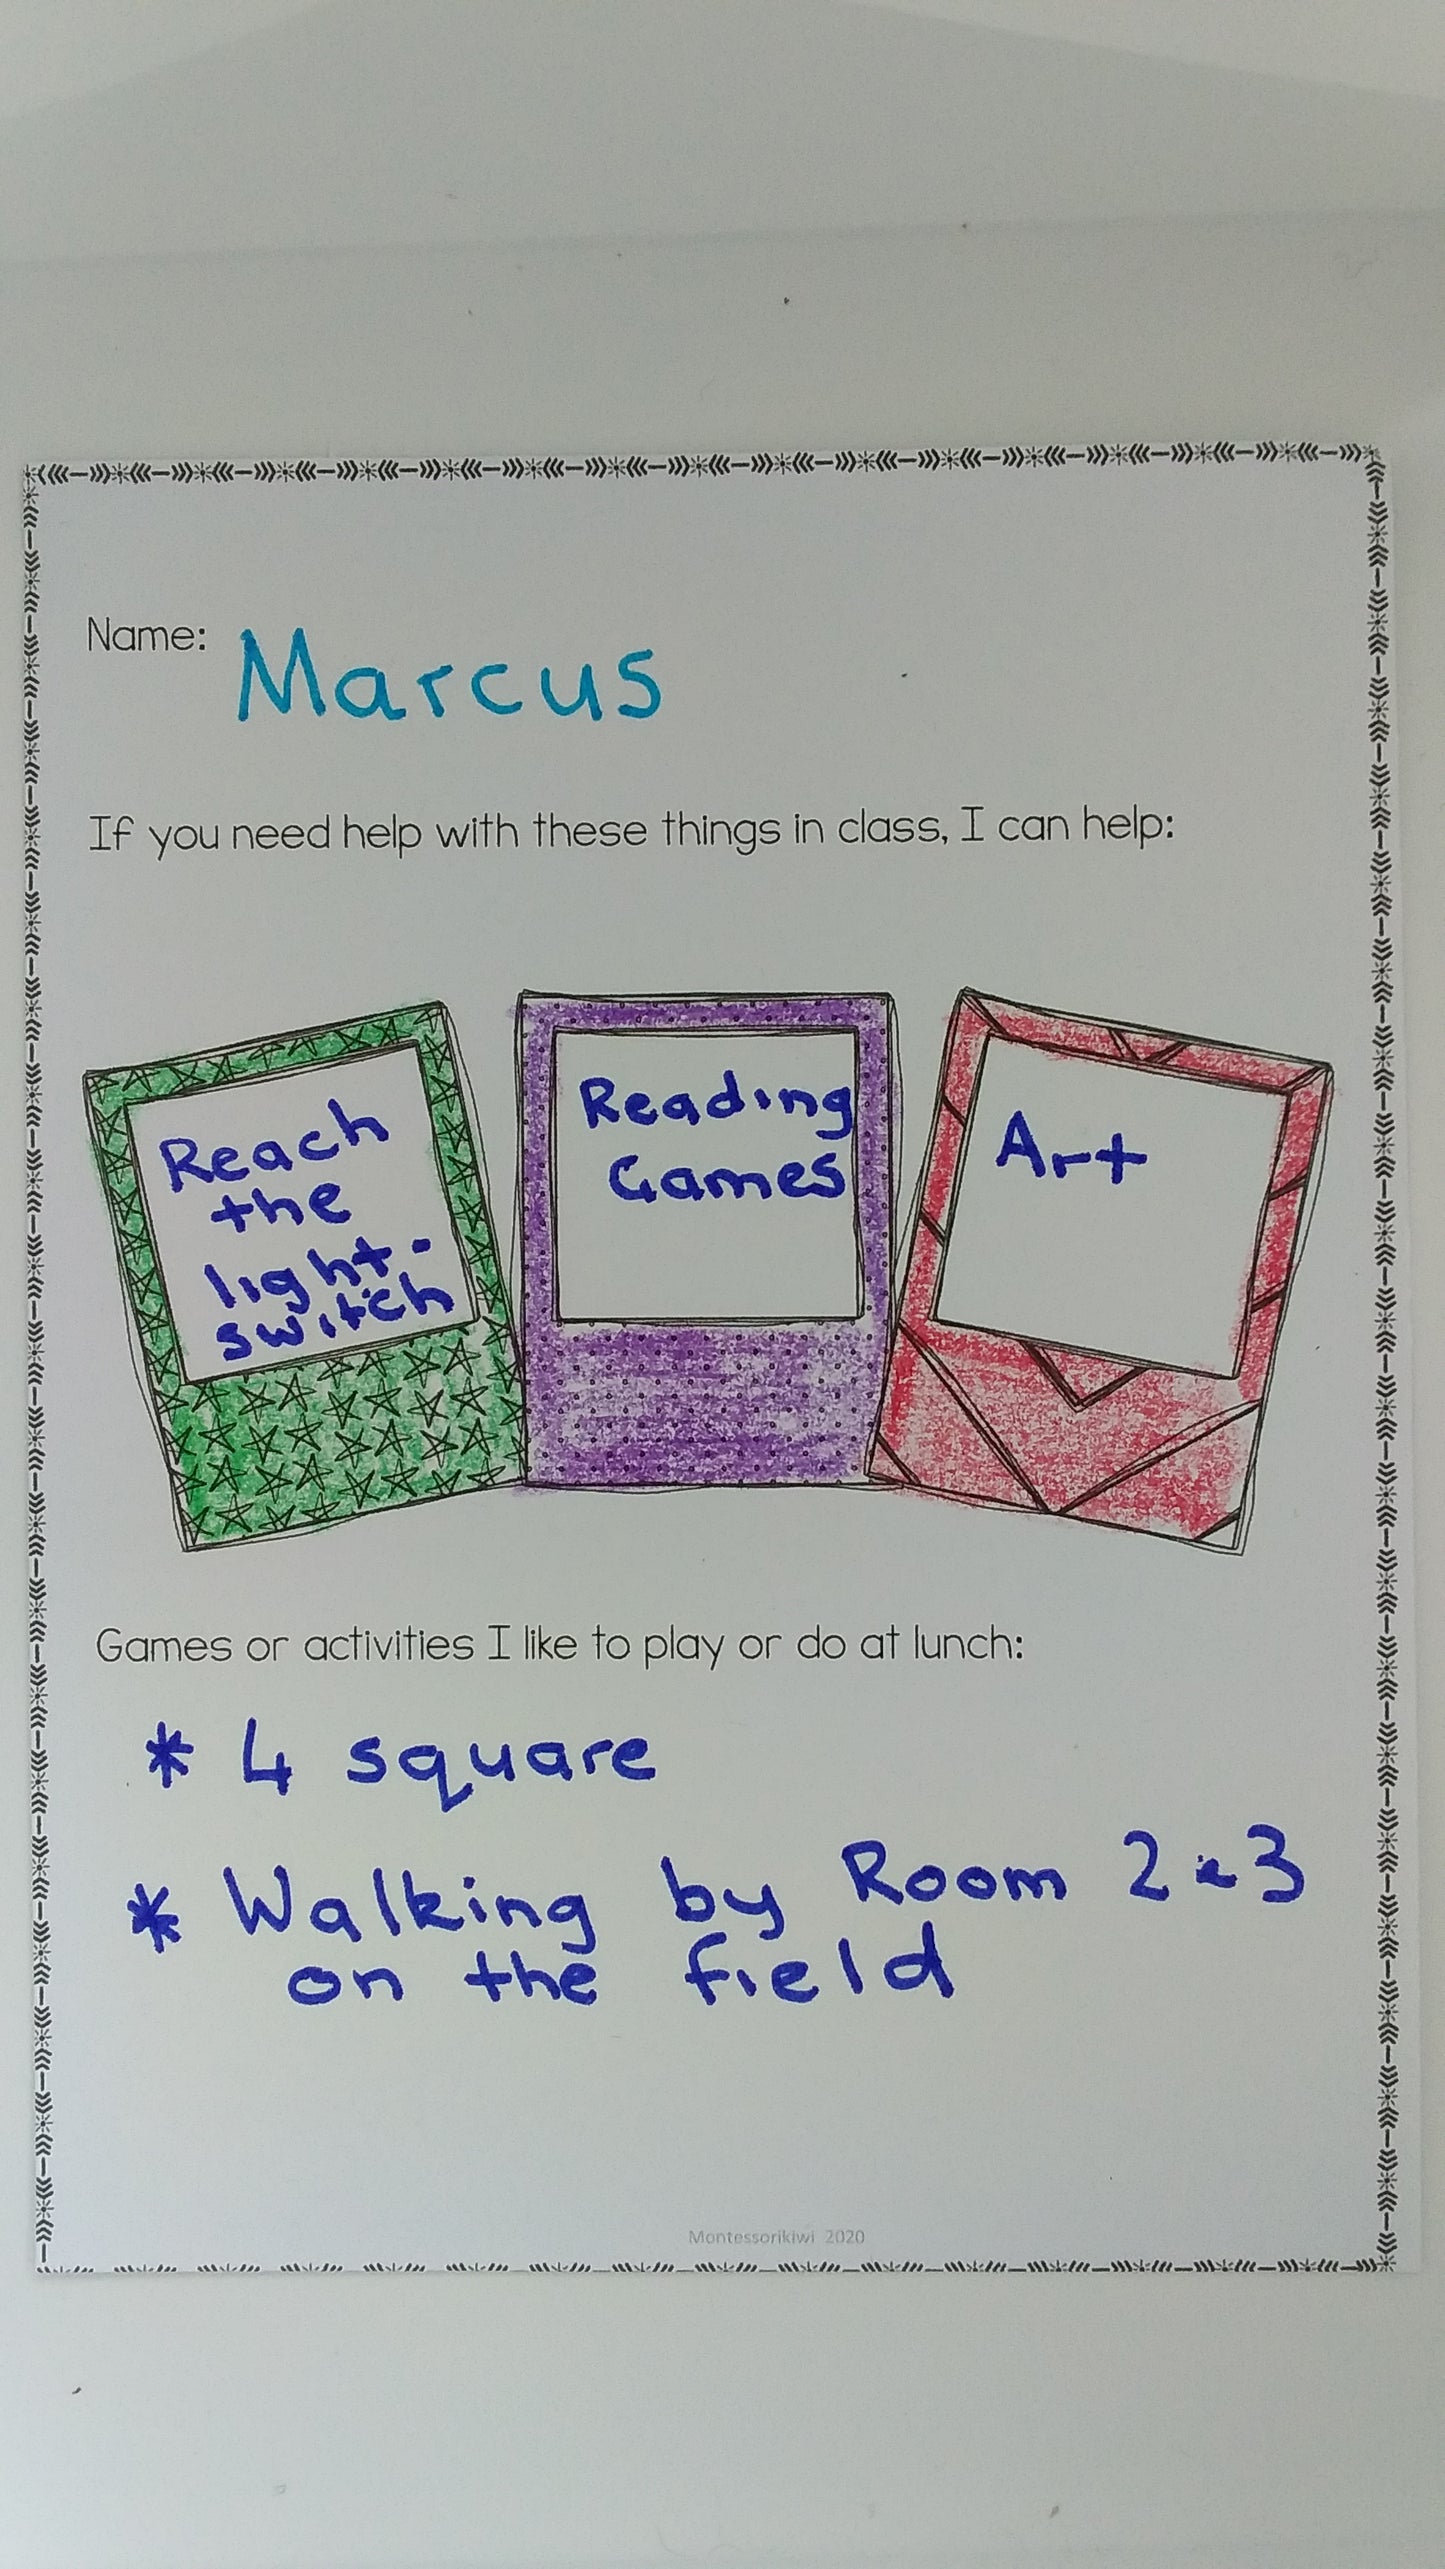 Name: Marcus
If you need help with these things in class, I can help:
Reach
the
light-
switch
Reading
Games
Art
Games or activities I like to play or do at lunch:
* 4 square
* Walking by Room 2 & 3
on the field
Montessorikiwi 2020